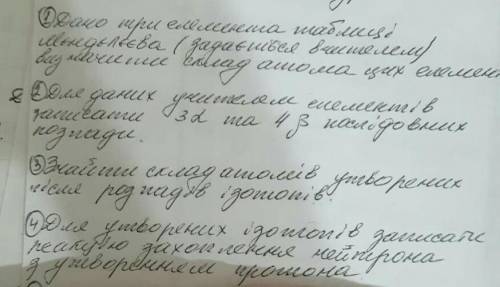 ① Дано три елемента таблиці
Менделєєва (задається вчителем)
визначити склад атома цих елемен
② Для даних учителем елементів
записати 3α та 4β послідовних
розпади.
③ Знайти склад атомів утворених
після розпадів ізотопів.
④ Для утворених ізотопів записати
реакцію захоплення нейтрона
з утворенням протона.